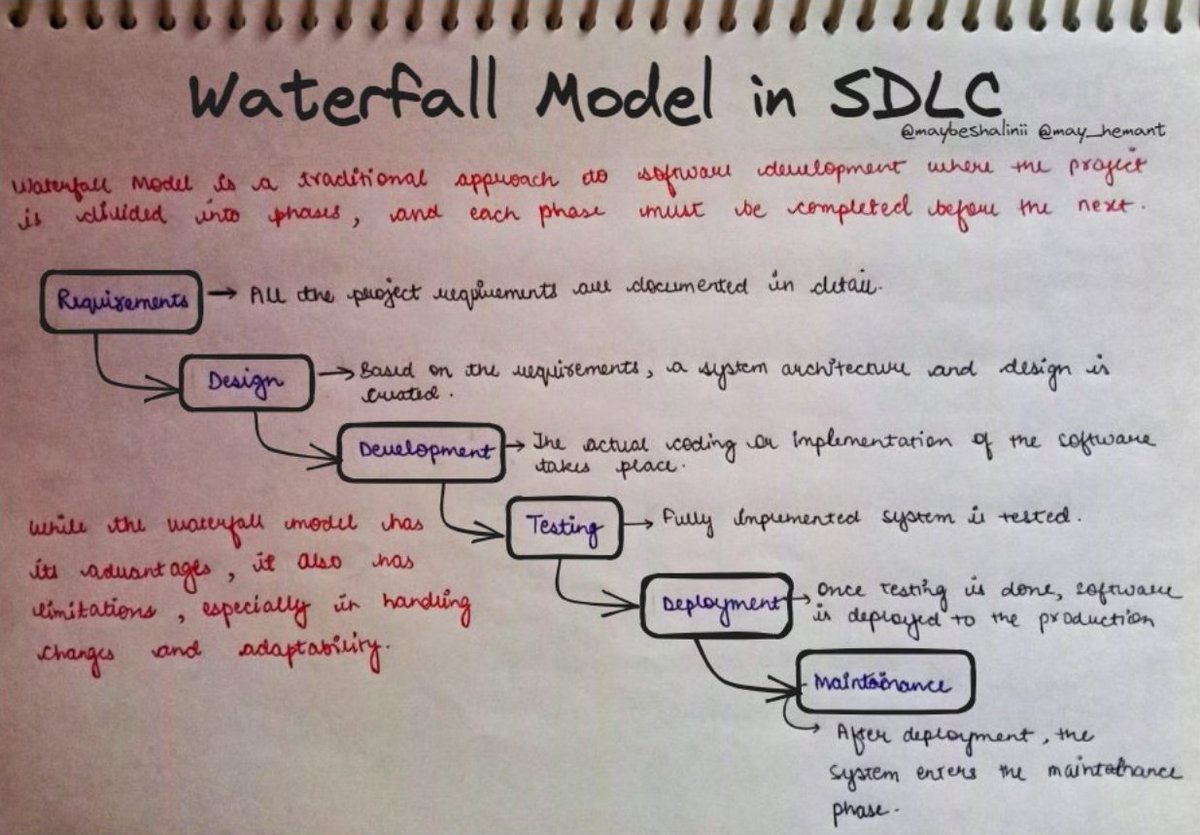 Waterfall Model in SDLC
@maybeshalinii @may_hemant
Waterfall Model is a traditional approach to software development where the project
is divided into phases, and each phase must be completed before the next.
Requirements → All the project requirements are documented in detail.
Design → Based on the requirements, a system architecture and design is
created.
Development → The actual coding or implementation of the software
takes place.
Testing → Fully implemented system is tested.
While the waterfall model has
its advantages, it also has
limitations, especially in handling
changes and adaptability.
Deployment → Once testing is done, software
is deployed to the production
Maintainance
After deployment, the
system enters the maintainance
phase.